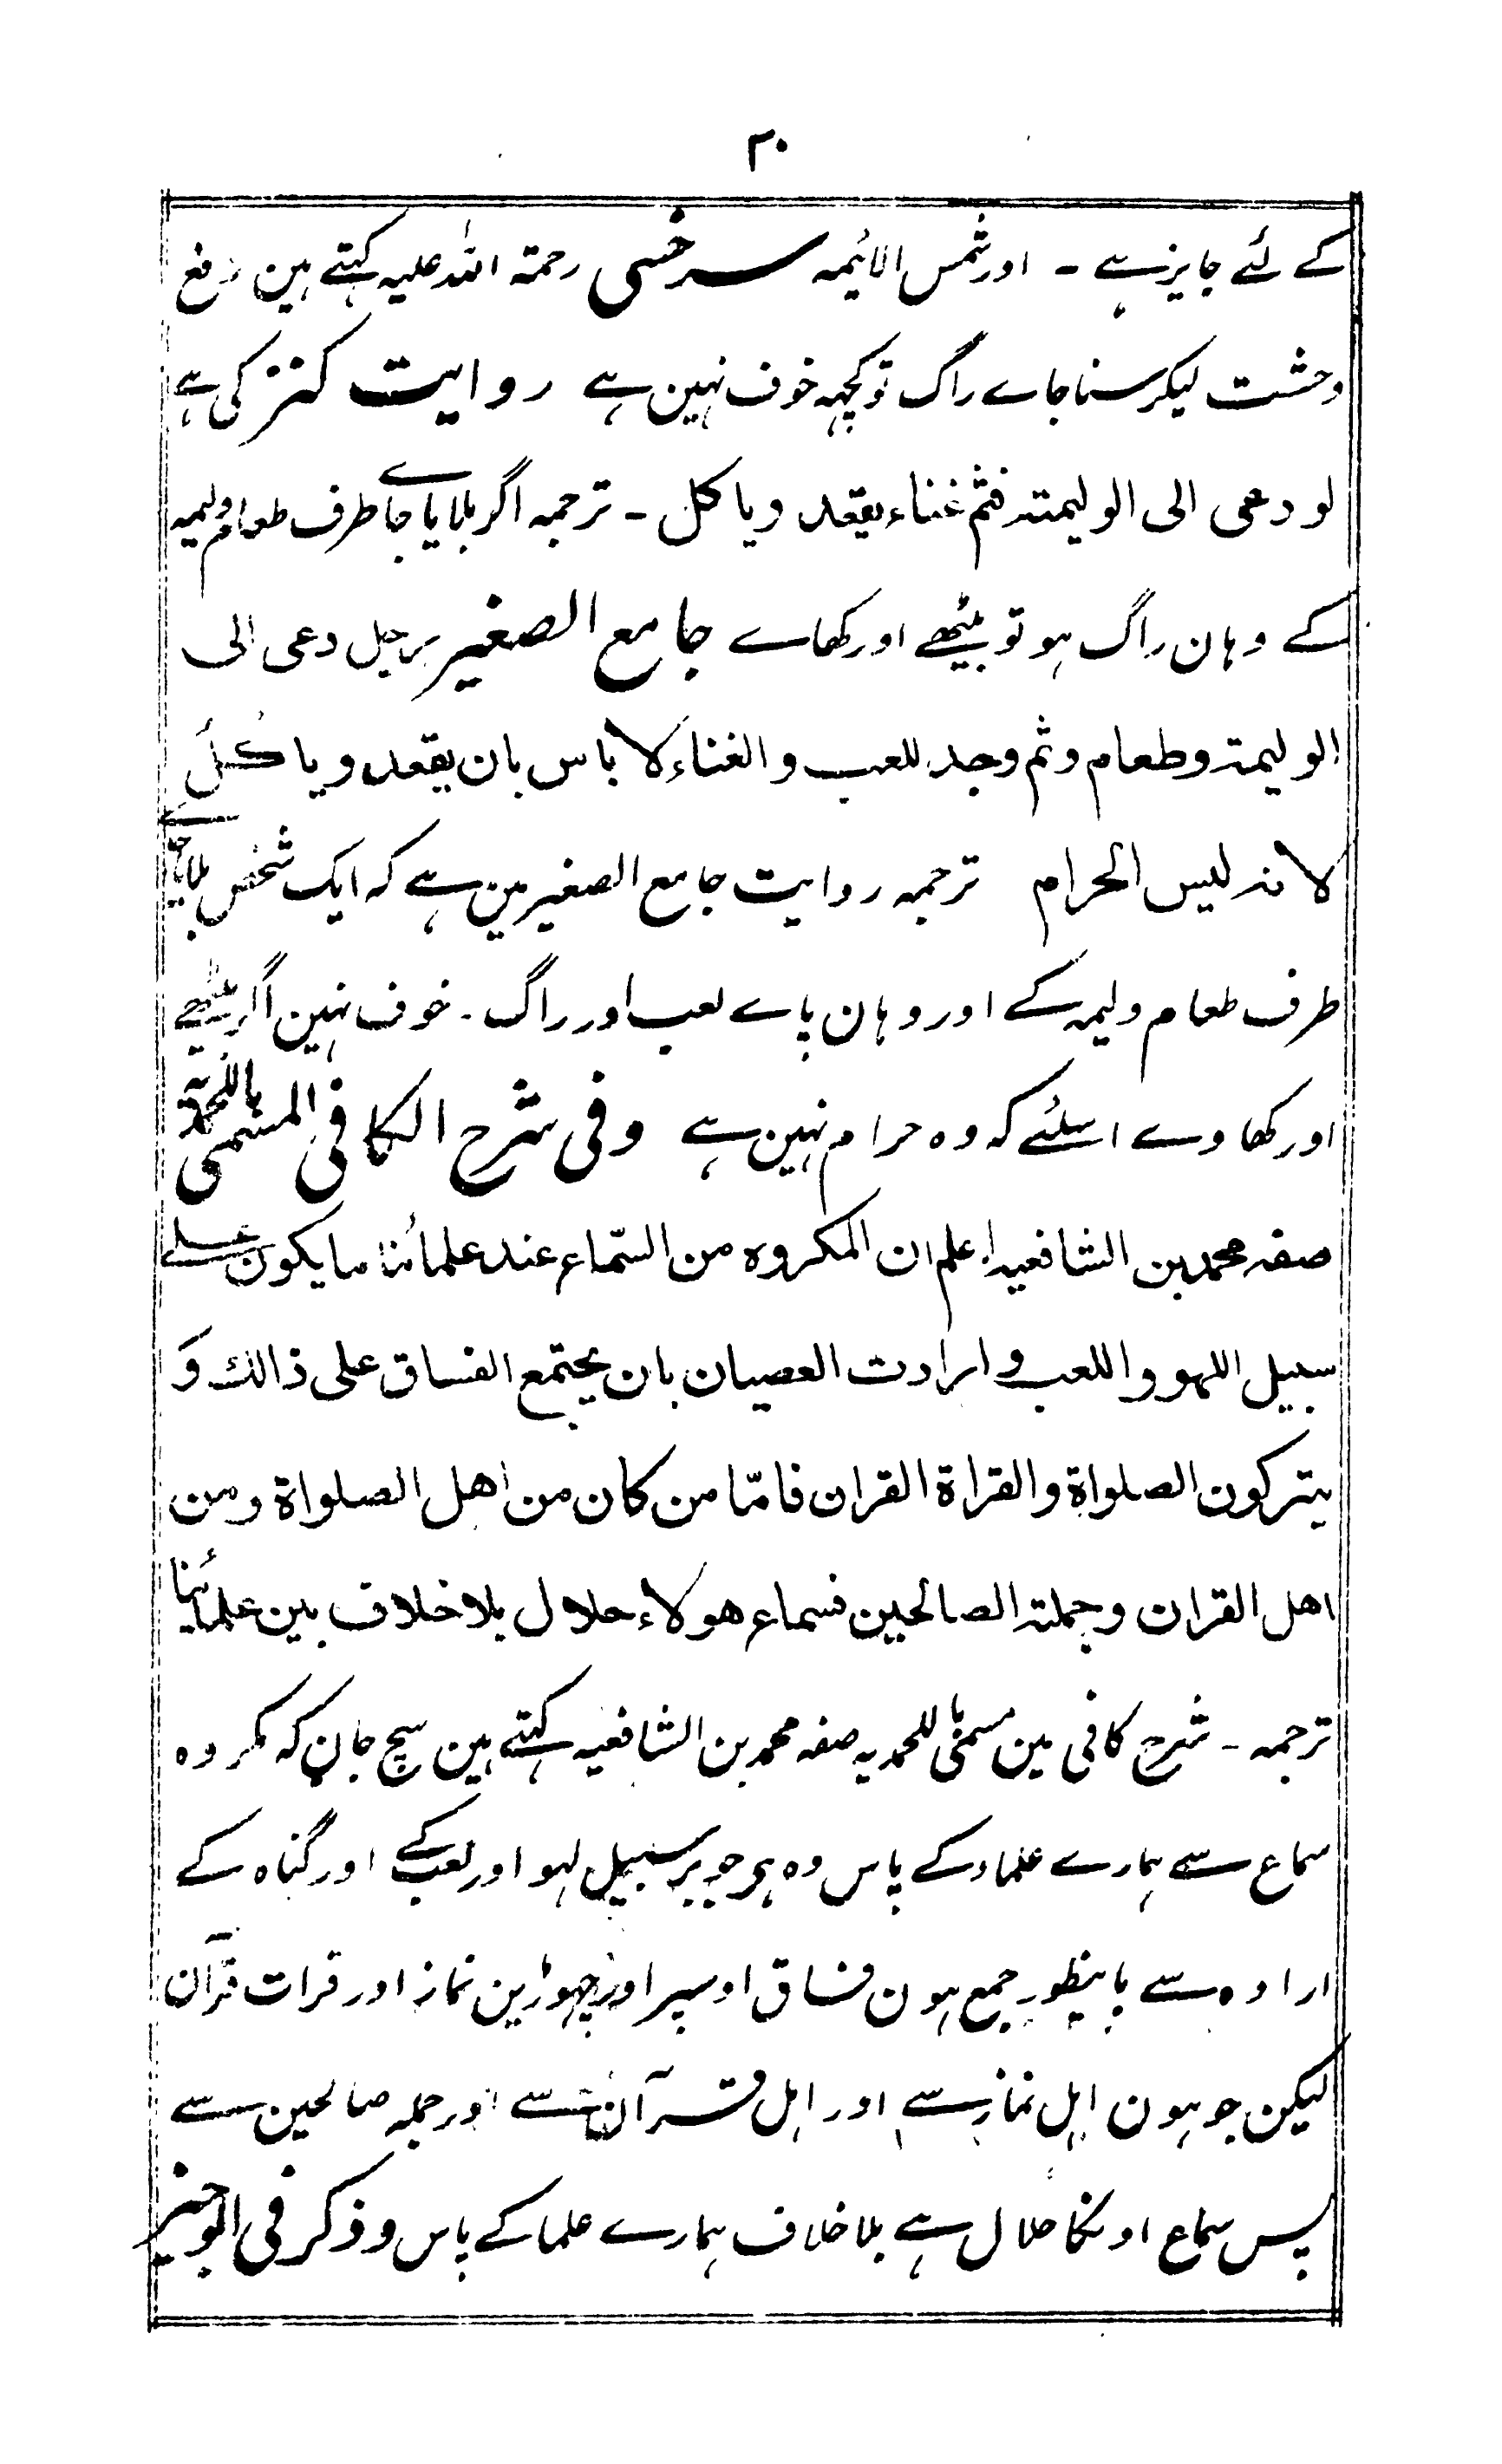 ۳۰
کے لئے جایز ہے ۔ اور شمس الائیمہ سرخسی رحمتہ اللہ علیہ کہتے ہین رفع
وحشت لیکر سنا جاے راگ تو کچہہ خوف نہین ہے روایت کنز کی ہے
لو دعی الی الولیمتہ فثم غناء یقعد ویاکل ۔ ترجمہ اگر بلایا جاے طرف طعام ولیمہ
کے وہان راگ ہو تو بیٹھے اور کھاے جامع الصغیر رجل دعی الی
الولیمتہ وطعام وثم وجد للعب والغناء لا باس بان یقعد ویاکل
لانہ لیس الحرام ترجمہ روایت جامع الصغیر مین ہے کہ ایک شخص بلایا جاے
طرف طعام ولیمہ کے اور وہان پاے لعب اور راگ ۔ خوف نہین اگر بیٹھے
اور کھاوے اسلئے کہ وہ حرام نہین ہے وفی شرح الکافی المسمی باللحمدیہ
صفہ محمد بن الشافعیہ اعلم ان المکروہ من السّماع عند علمائنا ما یکون علے
سبیل اللہو واللعب وارادت العصیان بان یجتمع الفساق علی ذالک وَ
یترکون الصلواة والقراة القران فامّا من کان من اھل الصلواة ومن
اھل القران وجملتہ الصالحین فسماع ھولاء حلال بلا خلاف بین علمائینا
ترجمہ ۔ شرح کافی مین مسمی باللحمدیہ صفہ محمد بن الشافعیہ کہتے ہین سچ جان کہ مکروہ
سماع سے ہمارے علماء کے پاس وہ ہر جو بر سبیل لہو اور لعب کے اور گناہ کے
ارادہ سے باینطور جمع ہون فساق اوسپر اور چہوڑین نماز اور قرات قرآن
لیکن جو ہون اہل نماز سے اور اہل قرآن سے اور جملہ صالحین سے
پس سماع اونکا حلال ہے بلا خلاف ہمارے علما کے پاس وذکر فی الوجیز